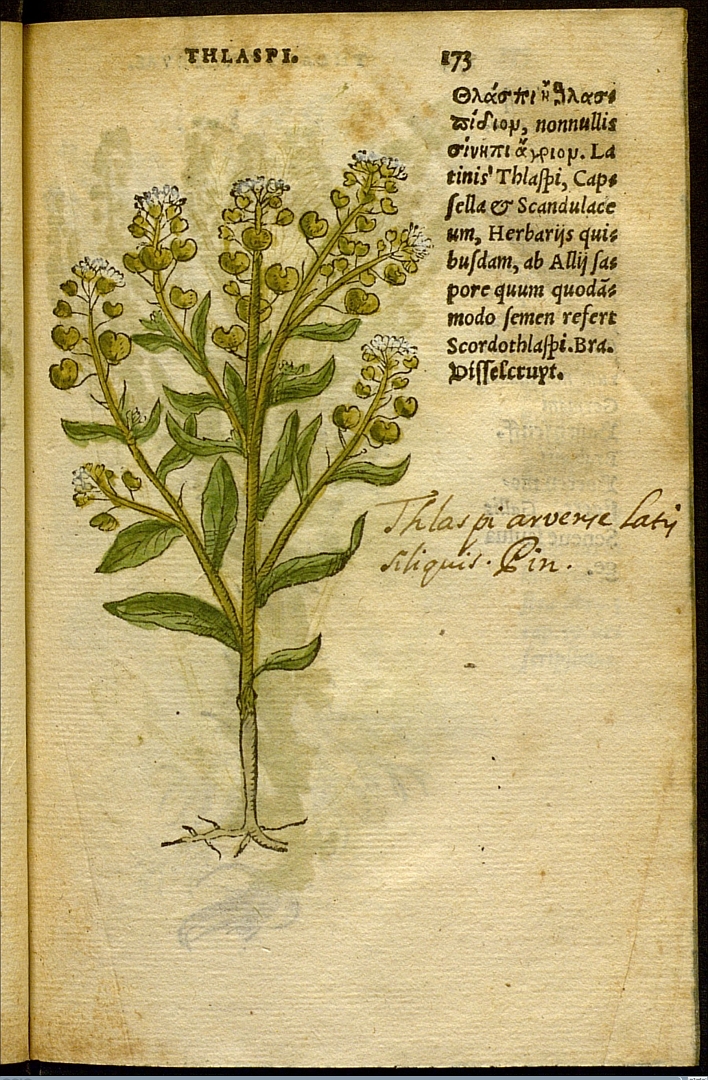 THLASPI.
173
Θλάσπι ἢ θλασ⸗
πίδιον, nonnullis
σίνηπι ἄγριον. La
tinis Thlaſpi, Cap⸗
ſella & Scandulace
um, Herbarijs qui⸗
buſdam, ab Allij ſa⸗
pore quum quodã⸗
modo ſemen refert
Scordothlaſpi. Bra.
Viſſelcrupt.
Thlaspi arvense latis
siliquis. Pin.